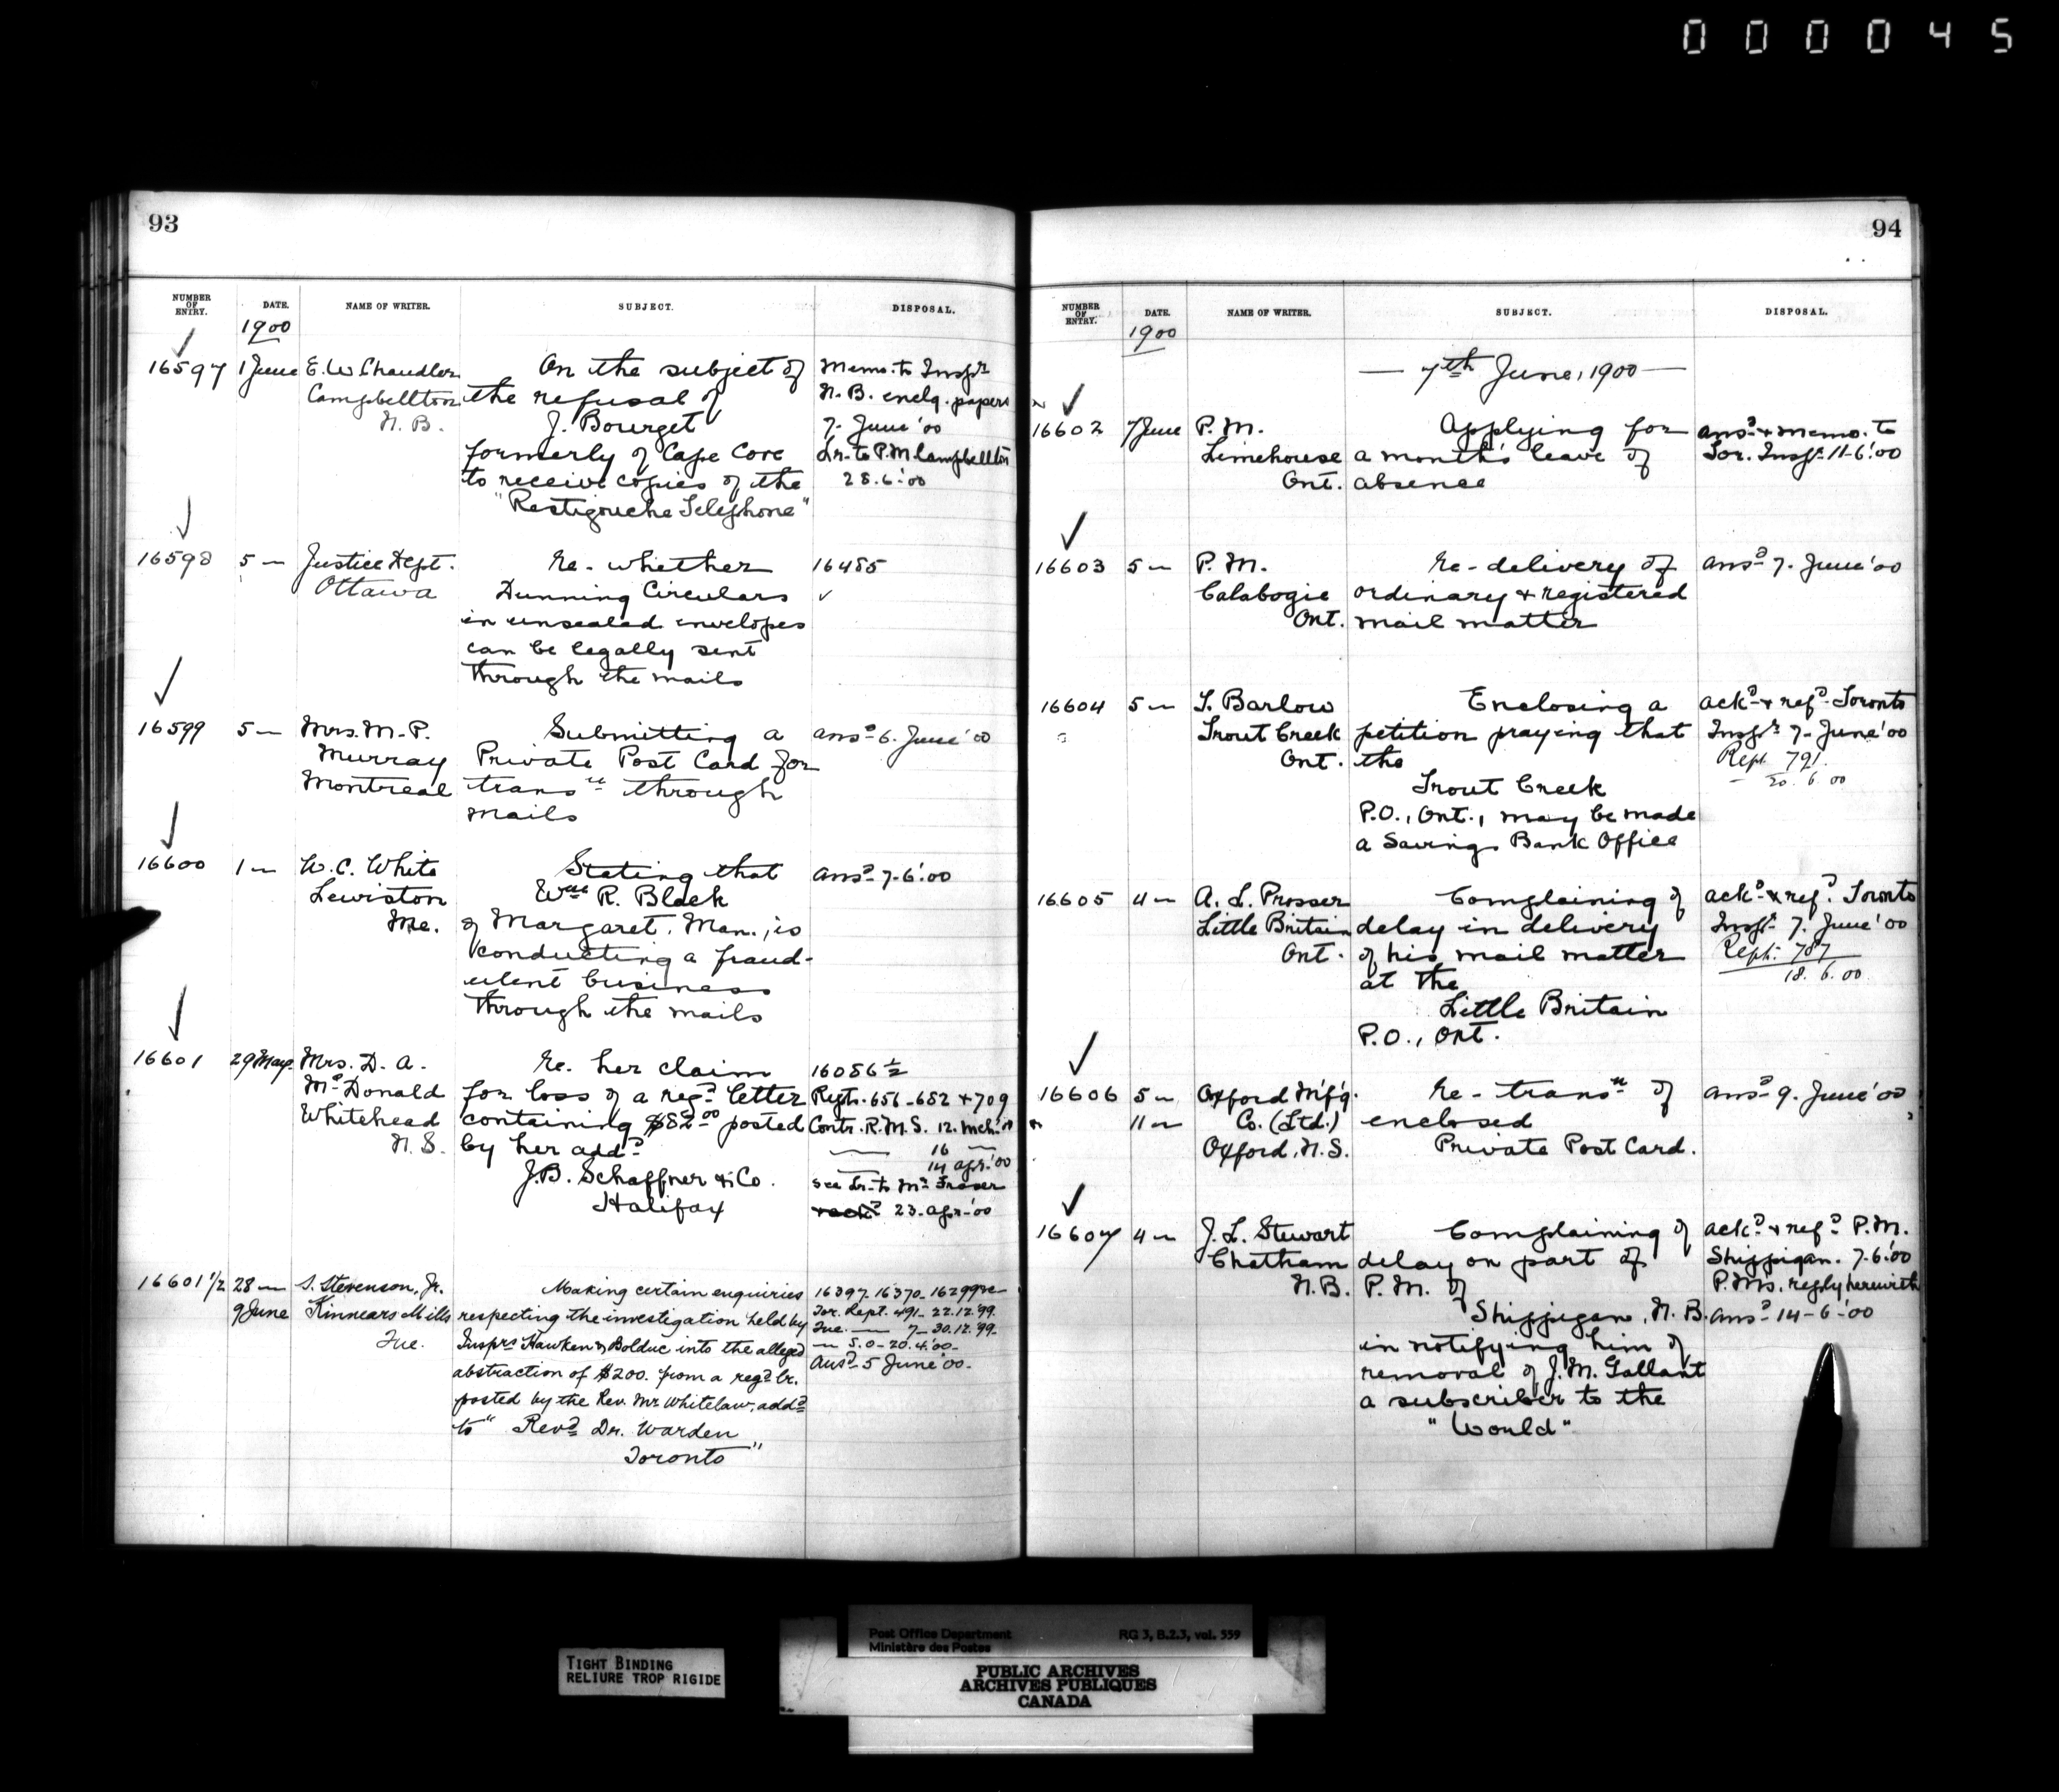 000045
93
NUMBER OF ENTRY. DATE. NAME OF WRITER. SUBJECT. DISPOSAL.
1900
16597 1 June E. W. Chandler On the subject of Memo. to Inspr
Campbellton the refusal of N. B. enclg. papers
N. B. J. Bourget 7. June '00
formerly of Cape Cove Lr. to P.M. Campbellton
to receive copies of the 28.6.'00
"Restigouche Telephone"
16598 5 — Justice Dept. Re- whether 16485
Ottawa Dunning Circulars ✓
in unsealed envelopes
can be legally sent
through the mails
16599 5 — Mrs. M. P. Submitting a ansd 6. June '00
Murray Private Post Card for
Montreal transn through
mails
16600 1 — W. C. White Stating that ansd 7.6.'00
Lewiston Wm R. Black
Me. of Margaret, Man., is
conducting a fraud-
ulent business
through the mails
16601 29 May Mrs. D. A. Re. her claim 16086½
McDonald for loss of a regd letter Repts. 651-682 & 709
Whitehead containing $82.00 posted Contr. R.M.S. 12. Mch. '00
N. S. by her addd — 16 —
J. B. Schaffner & Co. — 14 apr. '00
Halifax see Lr. to Mr Fraser
23. apr. '00
16601 1/2 28 — S. Stevenson, Jr. Making certain enquiries 16397-16370-16299
9 June Kinnears Mills respecting the investigation held by Tor. Rept. 491- 22.12.'99.
Que. Insprs Hawken & Bolduc into the alleged Que. — 7- 30.12.'99-
abstraction of $200. from a regd lr. — S.O- 20.4.'00-
posted by the Rev. Mr Whitelaw, addd Ansd 5 June '00-
to "Revd Dr. Warden
Toronto"
94
NUMBER OF ENTRY. DATE. NAME OF WRITER. SUBJECT. DISPOSAL.
1900
— 7th June, 1900 —
16602 7 June P. M. Applying for ansd & memo. to
Limehouse a month's leave of Tor. Inspr. 11-6.'00
Ont. absence
16603 5 — P. M. Re- delivery of ansd 7. June '00
Calabogie ordinary & registered
Ont. mail matter
16604 5 — T. Barlow Enclosing a ackd & refd Toronto
Trout Creek petition praying that Inspr. 7- June '00
Ont. the Rept. 791.
Trout Creek 20. 6 00
P.O., Ont., may be made
a Savings Bank Office
16605 4 — A. L. Prosser Complaining of ackd & refd. Toronto
Little Britain delay in delivery Inspr. 7. June '00
Ont. of his mail matter Rept. 787
at the 18. 6. 00
Little Britain
P.O., Ont.
16606 5 — Oxford M'f'g. Re- transn of ansd 9. June '00
11 — Co. (Ltd.) enclosed
Oxford, N. S. Private Post Card.
16607 4 — J. L. Stewart Complaining of ackd. & refd P. M.
Chatham delay on part of Shippigan. 7-6.'00
N. B. P. M. of P.M's. reply herewith
Shippigan, N. B. ansd 14-6-'00
in notifying him of
removal of J. M. Gallant
a subscriber to the
"World"
TIGHT BINDING
RELIURE TROP RIGIDE
Post Office Department RG 3, B.2.3, vol. 559
Ministère des Postes
PUBLIC ARCHIVES
ARCHIVES PUBLIQUES
CANADA